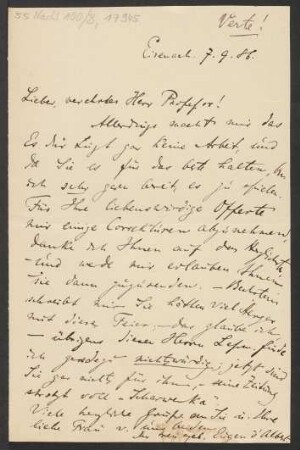 55 Nachl 100/B, 17945
Verte!
Eisenach. 7.9.86.
Lieber, verehrter Herr Professor!
Allerdings macht mir das
Es dur gar keine Arbeit, und
da Sie es für das halten, bin
ich sehr gern bereit es zu spielen.
Für Ihre liebenswürdige Offerte
mir einige Correkturen abzunehmen,
danke ich Ihnen auf das Herzlichste
– und werde mir erlauben Ihnen
Sie dann zuzusenden. –
schreibt mir Sie hätten viel Aerger
mit dieser Feier, – das glaube ich
– übrigens diesen Herrn finde
ich geradezu nichtswürdig; jetzt sind
Sie gar nichts für ihn, – seine Zeitung
strotzt voll "Scharwenka".
Viele herzliche Grüße an Sie u. Ihre
liebe Frau v.
Eugen d'Albert